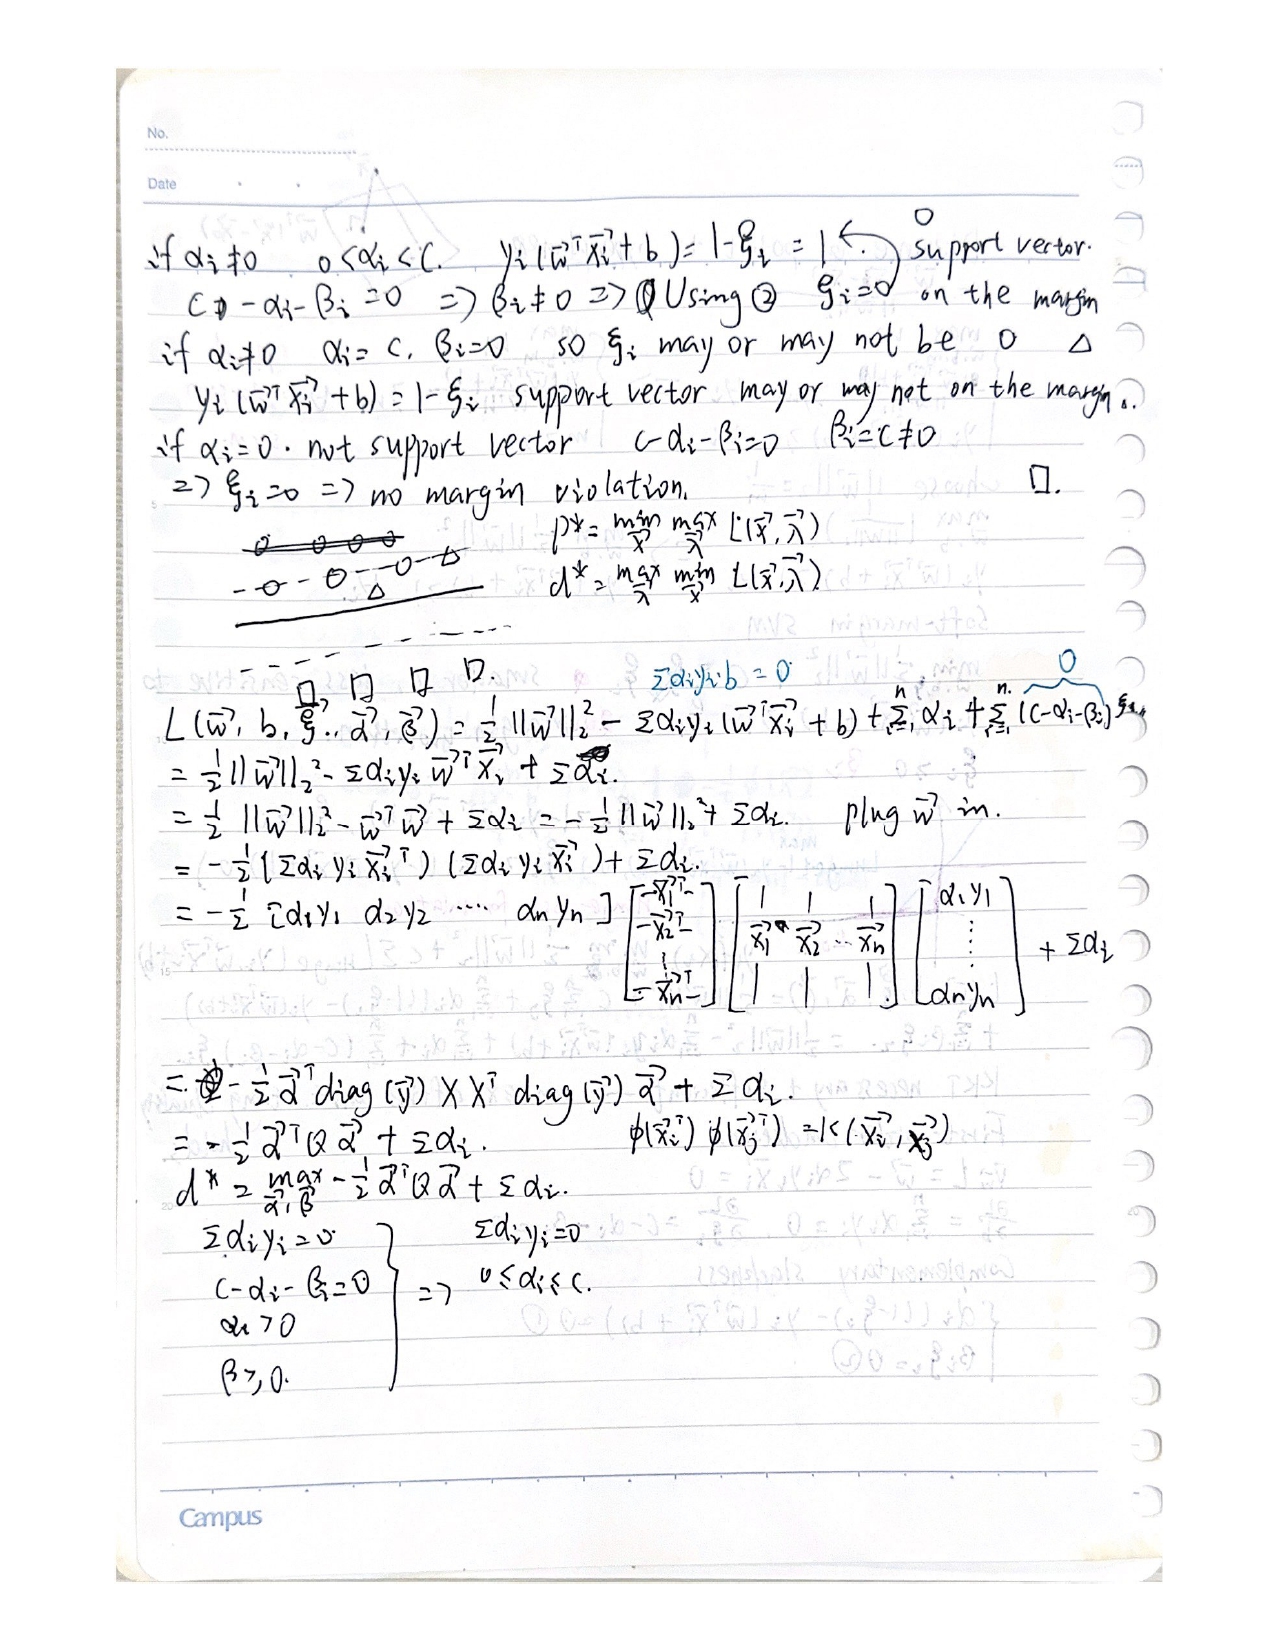 No.
Date
if αi ≠ 0   0 < αi < C.   yi(w⃗ᵀx⃗i + b) = 1 - ξi = 1   O support vector.
C - αi - βi = 0 => βi ≠ 0 => Using ② ξi = 0 on the margin
if αi ≠ 0   αi = C, βi = 0   so ξi may or may not be 0   △
yi(w⃗ᵀx⃗i + b) = 1 - ξi support vector may or may not on the margin.
if αi = 0. not support vector   C - αi - βi = 0   βi = C ≠ 0
=> ξi = 0 => no margin violation.   □.
p* = min_x⃗ max_λ⃗ L(x⃗, λ⃗)
d* = max_λ⃗ min_x⃗ L(x⃗, λ⃗).
Σαiyi·b = 0   0
L(w⃗, b, ξ⃗, α⃗, β⃗) = ½||w⃗||₂² - Σαiyi(w⃗ᵀx⃗i + b) + Σⁿᵢ₌₁ αi + Σⁿᵢ₌₁ (C-αi-βi)ξi
= ½||w⃗||₂² - Σαiyi w⃗ᵀx⃗i + Σαi.
= ½||w⃗||₂² - w⃗ᵀw⃗ + Σαi = -½||w⃗||₂² + Σαi.   plug w⃗ in.
= -½(Σαiyix⃗iᵀ)(Σαiyix⃗i) + Σαi.
= -½ [α1y1 α2y2 ····· αnyn] [-x⃗1ᵀ- -x⃗2ᵀ- | -x⃗nᵀ-] [x⃗1 x⃗2 ... x⃗n] [α1y1 ⋮ αnyn] + Σαi
= -½ α⃗ᵀ diag(y⃗) X Xᵀ diag(y⃗) α⃗ + Σαi.
= -½ α⃗ᵀQα⃗ + Σαi.   ϕ(x⃗iᵀ) ϕ(x⃗jᵀ) = K(x⃗i, x⃗j)
d* = max_α⃗,β⃗ -½ α⃗ᵀQα⃗ + Σαi.
Σαiyi = 0   Σαiyi = 0
C - αi - βi = 0   =>   0 ≤ αi ≤ C.
αi > 0
β ≥ 0.
Campus